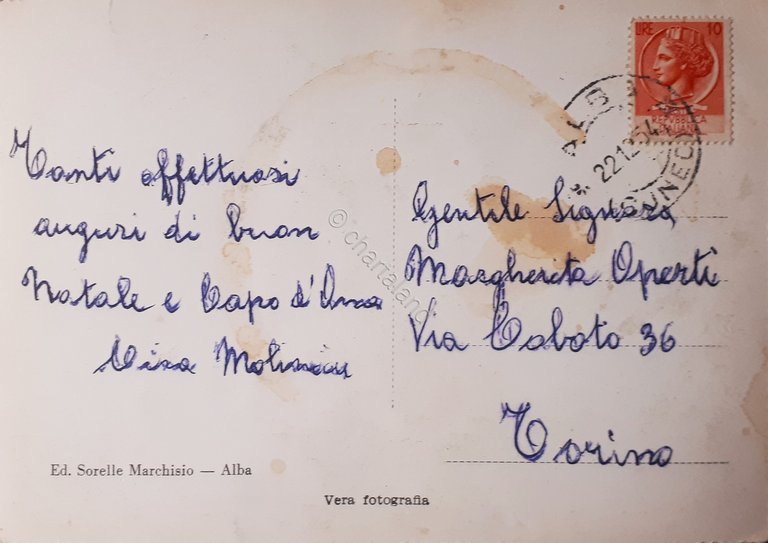 LIRE 10
REPUBBLICA
ITALIANA
ALBA
22.12.54
CUNEO
Tanti affettuosi
auguri di buon
Natale e Capo d'Anno
Gentile Signora
Margherita Operti
Via Caboto 36
Torino
Ed. Sorelle Marchisio — Alba
Vera fotografia
© chartaland